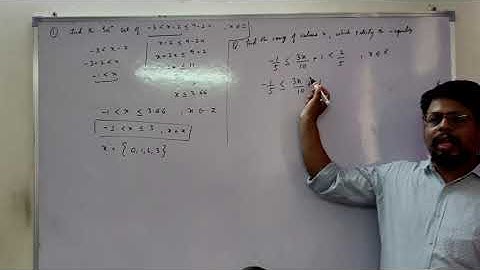 ① Find the sol^n set of -3 < x-2 ≤ 9-2x , x ∈ Z
-3 < x-2
-3+2 < x
-1 < x
x-2 ≤ 9-2x
x+2x ≤ 9+2
≤ 11
x ≤ 3.66
-1 < x ≤ 3.66 , x ∈ Z
-1 < x ≤ 3 , x ∈ Z
x = { 0, 1, 2, 3 }
Q. Find the range of values x, which satisfy the inequality
-1/5 ≤ 3x/10 + 1 < 2/5 , x ∈ R
-1/5 ≤ 3x/10 + 1